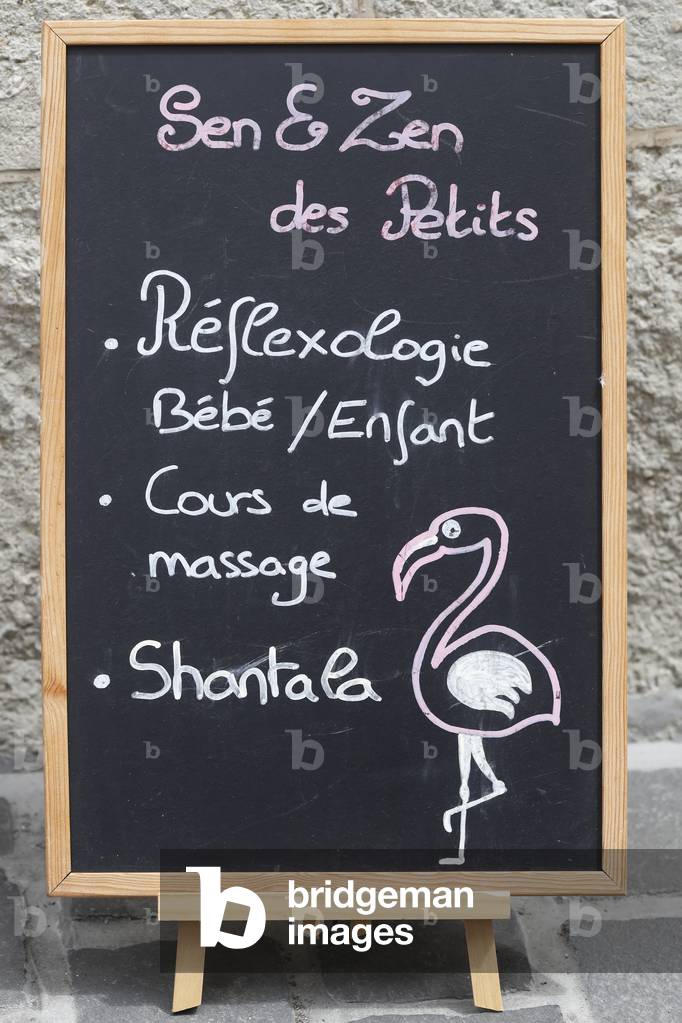 Sen & Zen
des Petits
• Réflexologie
Bébé / Enfant
• Cours de
massage
• Shantala
b bridgeman
images